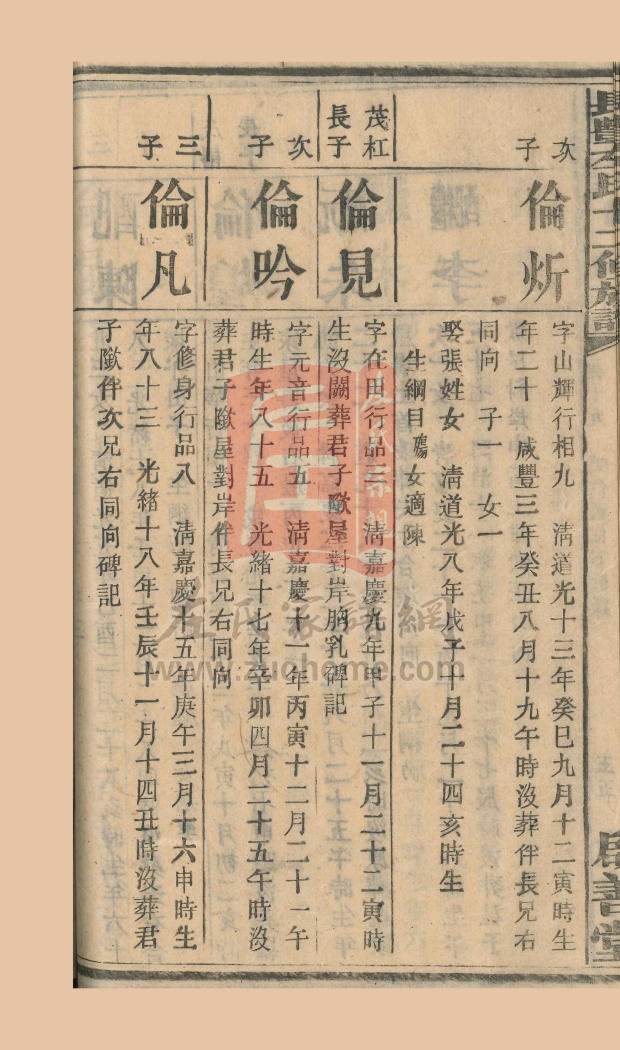 長豐左氏十二修族譜
啟善堂
次子
倫炘
字山輝行相九　淸道光十三年癸巳九月十二寅時生
年二十　咸豐三年癸丑八月十九午時沒葬伴長兄右
同向　子一　女一
娶張姓女　淸道光八年戊子十月二十四亥時生
生綱目殤女適陳
茂杠
長子
倫見
字在田行品三　淸嘉慶九年甲子十一月二十二寅時
生沒闕葬君子歞屋對岸胸乳碑記
次子
倫吟
字元音行品五　淸嘉慶十一年丙寅十二月二十一午
時生年八十五　光緒十七年辛卯四月二十五午時沒
葬君子歞屋對岸伴長兄右同向
三子
倫凡
字修身行品八　淸嘉慶十五年庚午三月十六申時生
年八十三　光緒十八年壬辰十一月十四丑時沒葬君
子歞伴次兄右同向碑記
左氏家譜網
www.zuohome.com